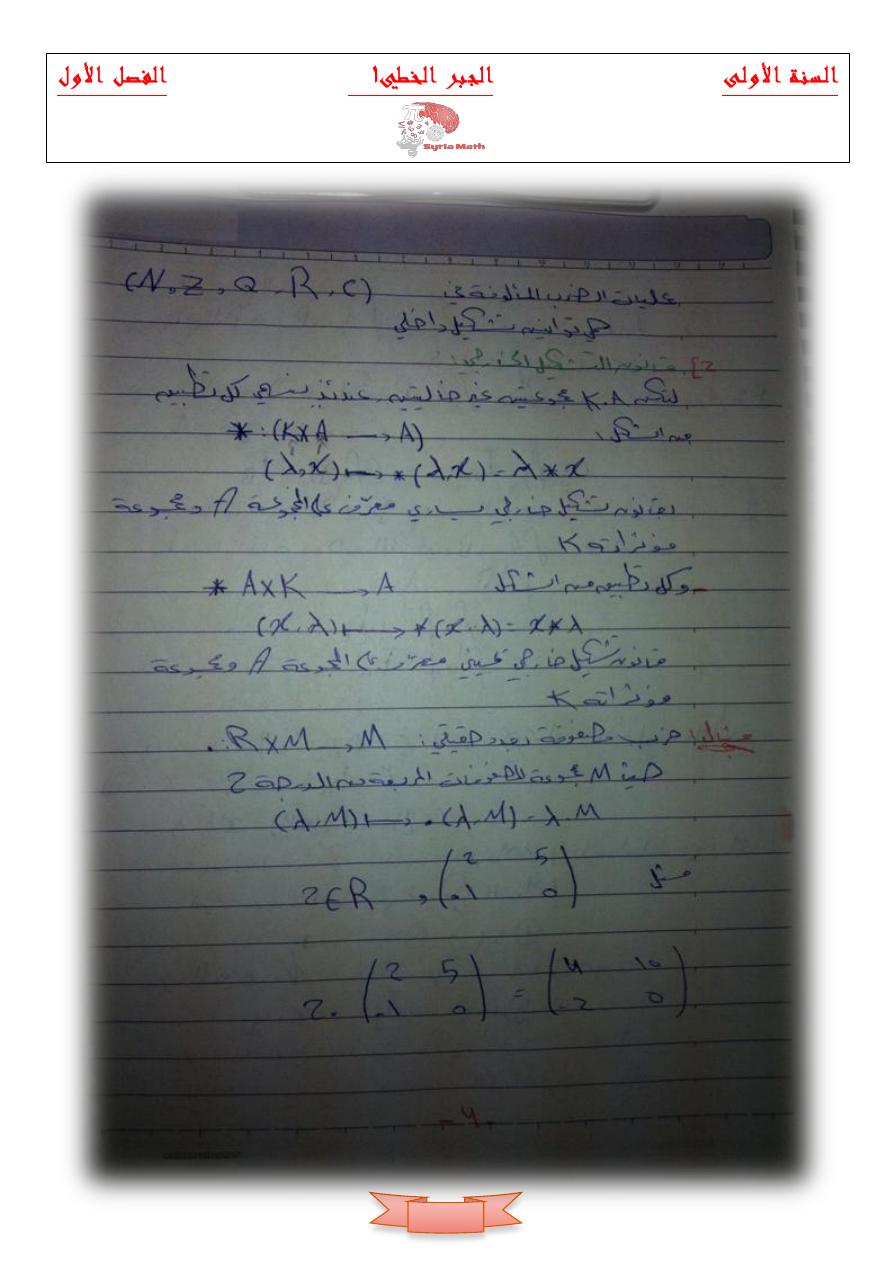 السنة الأولى
الجبر الخطي1
الفصل الأول
Syria Math
عمليات الضرب المألوفة في (N, Z, Q, R, C)
هي قوانين تشكيل داخلي
2] قانون التشكيل الخارجي:
لتكن K, A مجموعتين غير خاليتين عندئذ نسمي كل تطبيق
من الشكل: *: (K×A ⟶ A)
(λ,x) ⟼ *(λ,x) = λ * x
بقانون تشكيل خارجي يساري معرّف على المجموعة A ومجموعة
مؤثراته K
- وكل تطبيق من الشكل * A×K ⟶ A
(x,λ) ⟼ *(x,λ) = x * λ
قانون تشكيل خارجي يميني معرّف على المجموعة A ومجموعة
مؤثراته K
مثال: ضرب مصفوفة بعدد حقيقي: R×M → M .
حيث M مجموعة المصفوفات المربعة من الدرجة 2
(λ,M) ⟼ .(λ,M) = λ.M
مثل (2 5 / -1 0) , 2∈R
2. (2 5 / -1 0) = (4 10 / -2 0)
-4-